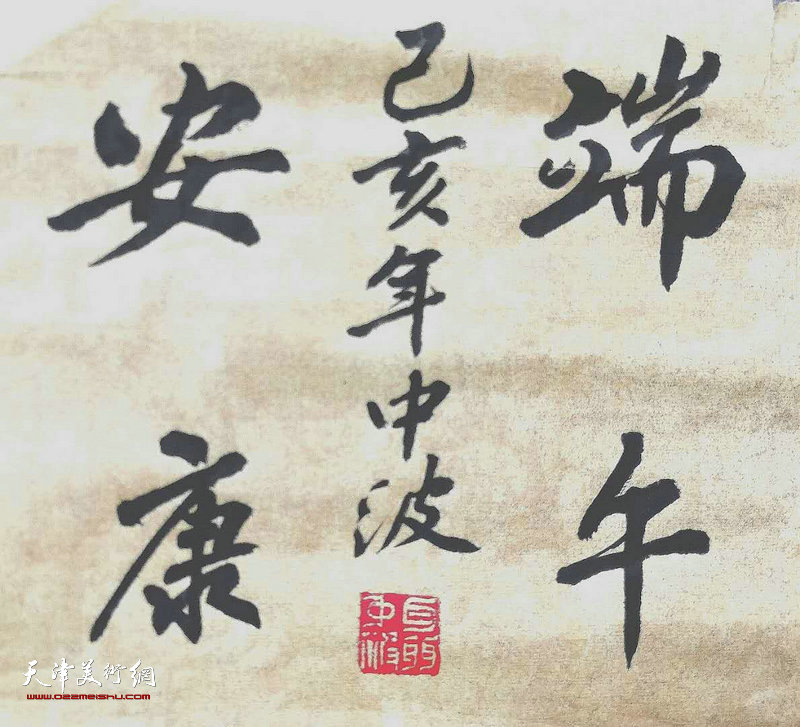 端午
己亥年中波
安康
天津美術網
www.022meishu.com